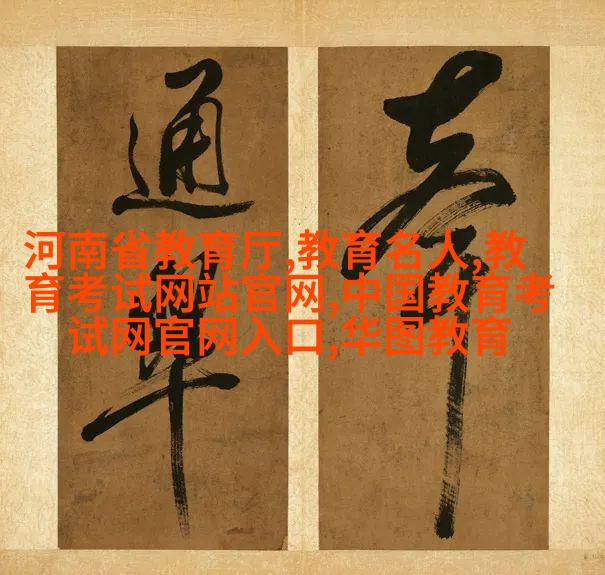 河南省教育厅,教育名人,教
育考试网站官网,中国教育考
试网官网入口,华图教育
通